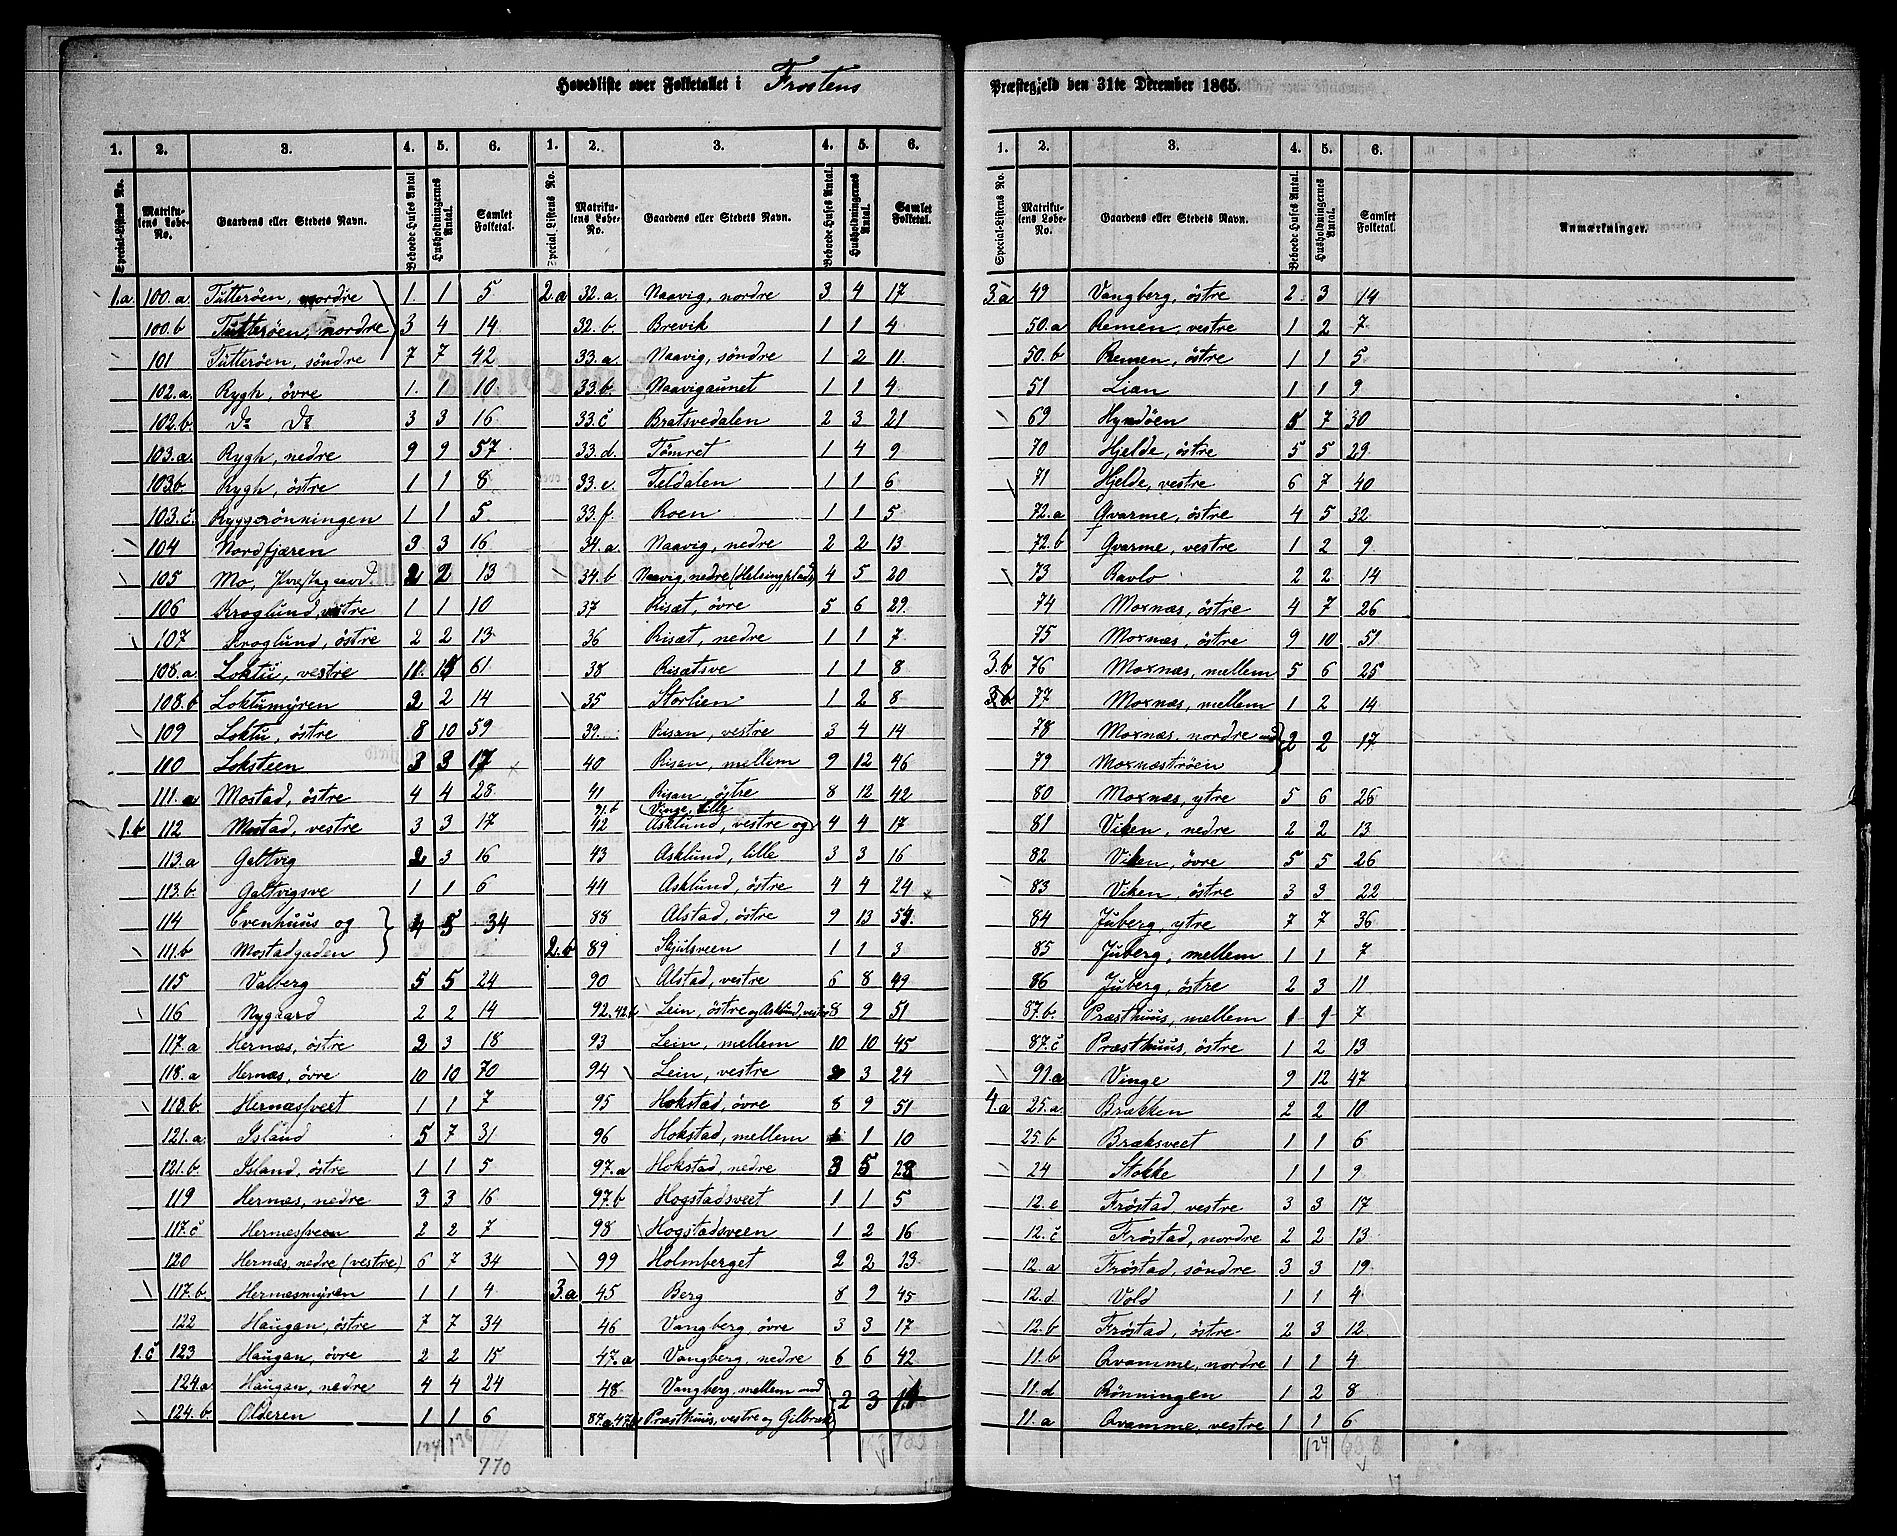 Hovedliste over Folketallet i Frostens
Præstegjeld den 31te December 1865.
1. 2. 3. 4. 5. 6. 1. 2. 3. 4. 5. 6.
Special-Listens No. Matrikulens Løbe-No. Gaardens eller Stedets Navn. Beboede Huses Antal Husholdningernes Antal. Samlet Folketal. Special Listens No. Matrikulens Løbe-No. Gaardens eller Stedets Navn. Beboede Huses Antal. Husholdningernes Antal. Samlet Folketal.
1.a 100.a Tutterøen, nordre 1. 1 5
100.b Tutterøen, nordre 3 4 14
101 Tutterøen, söndre 7 7 42
102.a. Rygh, övre 1. 1 10
102.b. Do Do 3 3 16
103.a. Rygh, nedre 9 9 57
103.b. Rygh, östre 1 1 8
103.c. Ryggrönningen 1 1 5
104 Nordfjæren 3 3 16
105 Mo, 2 2 13
106 Kroglund, vestre 1 1 10
107 Kroglund, östre 2 2 13
108.a Loktu, vestre 11. 15 61
108.b Loktumyren 2 2 14
109 Loktu, östre 8 10 59
110 Loksteen 3 3 17
111.a Mostad, östre 4 4 28
1.b 112 Mostad, vestre 3 3 17
113.a Galtvig 2 3 16
113.b. Galtvigsve 1 1 6
114 Evenhuus og 4 5 34
111.b Mostadgaden
115 Valberg 5 5 24
116 Nygaard 2 2 14
117.a Hernæs, östre 2 3 18
118.a Hernæs, övre 10 10 70
118.b. Hernæsveet 1 1 7
121.a. Island 5 7 31
121.b. Island, östre 1 1 5
119 Hernæs, nedre 3 3 16
117.c Hernæsveen 2 2 7
120 Hernæs, nedre (vestre) 6 7 34
117.b. Hernæsmyren 1 1 4
122 Haugan, östre 7 7 34
1.c 123 Haugan, övre 2 2 15
124.a Haugan, nedre 4 4 24
124.b. Olderen 1 1 6
770
2.a 32.a. Naavig, nordre 3 4 17
32.b. Brevik 1 1 4
33.a. Naavig, söndre 1 2 11.
33.b. Naavigaunet 1 1 4
33.c Bratsvedalen 2 3 21
33.d. Tømret 1 4 9
33.e. Feldalen 1 1 6
33.f. Roen 1 1 5
34.a Naavig, nedre 2 2 13
34.b Naavig, nedre (Helsingplads) 4 5 20
37 Risæt, övre 5 6 29.
36 Risæt, nedre 1 1 7
38 Risætsve 1 1 8
35 Storlien 1 2 8
39. Risan, vestre 3 4 14
40 Risan, mellem 9 12 46
41 Risan, östre 8 12 42
91.b Vinge, lille
42 Asklund, vestre og 4 4 17
43 Asklund, lille 3 3 16
44 Asklund, östre 4 4 24
88 Alstad, östre 9 13 59.
2.b 89 Skjulsveen 1 1 3
90 Alstad, vestre 6 8 49
92.42.b. Lein, östre og Asklund, vestre 8 9 51
93 Lein, mellem 10 10 45
94 Lein, vestre 2 3 24
95 Hokstad, övre 8 9 51
96 Hokstad, mellem 1 1 10
97.a Hokstad, nedre 3 5 23
97.b Hogstadsveet 1 1 5
98 Hogstadsveen 1 2 16
99 Holmberget 2 2 13
3.a 45 Berg 8 9 45
46 Vangberg, övre 3 3 17
47.a Vangberg, nedre 6 6 42
48. Vangberg, mellem med 2 3
87.a,47.b Præsthuus, vestre og Gilbrak
1. 2. 3. 4. 5. 6.
Special-Listens No. Matrikulens Løbe-No. Gaardens eller Stedets Navn. Beboede Huses Antal. Husholdningernes Antal. Samlet Folketal. Anmærkninger.
3.a 49 Vangberg, östre 2 3 14
50.a Remen, vestre 1 2 7
50.b Remen, östre 1 1 5
51 Lian 1 1 9
69 Hyndöen 5 7 30
70 Hjelde, östre 5 5 29.
71 Hjelde, vestre 6 7 40
72.a Gvarme, östre 4 5 32
72.b Gvarme, vestre 1 2 9
73 Ravlo 2 2 14
74 Moxnæs, östre 4 7 26
75 Moxnæs, östre 9 10 51
3.b 76 Moxnæs, mellem 5 6 25
3.b 77 Moxnæs, mellem 1 2 14
78 Moxnæs, nordre med 2 2 17
79 Moxnæströen
80 Moxnæs, ytre 5 6 26
81 Viken, nedre 2 2 13
82 Viken, övre 5 5 26
83 Viken, östre 3 3 22
84 Juberg, ytre 7 7 36
85 Juberg, mellem 1 1 7
86 Juberg, östre 2 3 11
87.b. Præsthuus, mellem 1 1 7
87.c Præsthuus, östre 1 2 13
91.a Vinge 9 12 47
4.a 25.a. Brækken 2 2 10
25.b Bræksveet 1 1 6
24 Stokke 1 1 9
12.e Fröstad, vestre 3 3 17
12.c Fröstad, nordre 2 2 13
12.a Fröstad, söndre 3 3 19
12.d. Vold 1 1 4
12.b Fröstad, östre 2 3 12
11.b Qvamme, nordre 1 1 4
11.d Rönningen 1 2 8
11.a Qvamme, vestre 1 1 6
124